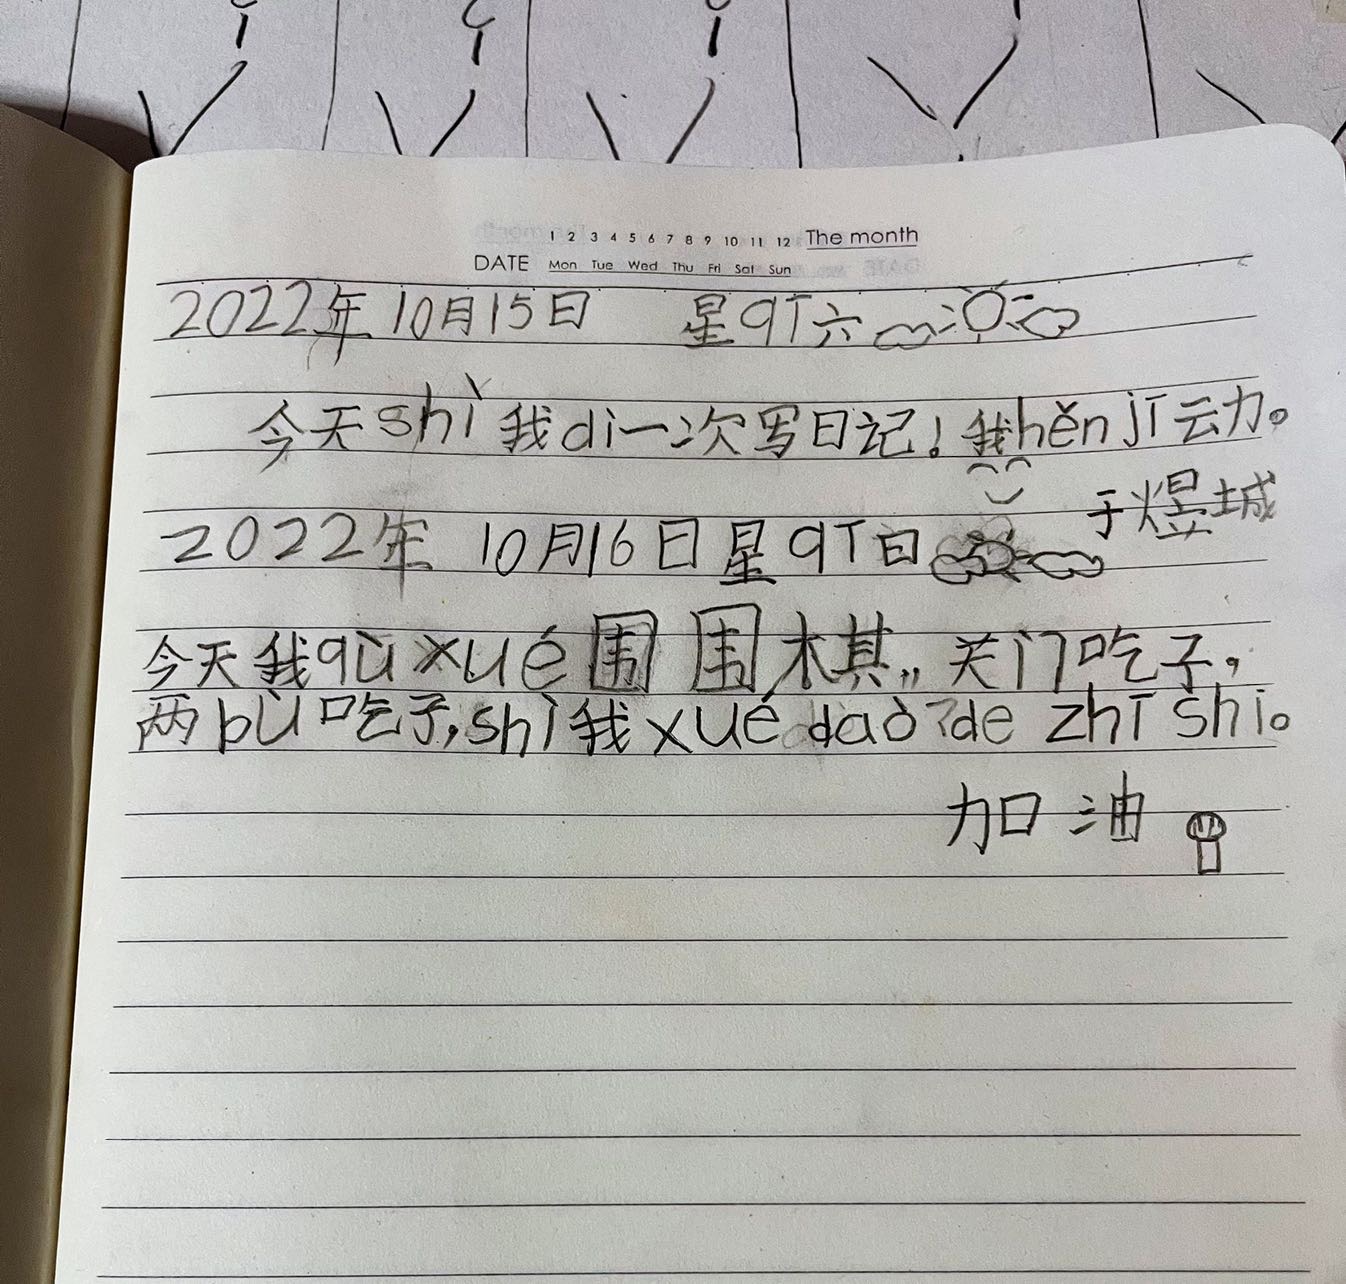 1 2 3 4 5 6 7 8 9 10 11 12 The month
DATE Mon Tue Wed Thu Fri Sat Sun
2022年10月15日 星qī六
今天shì我di一次写日记!我hěn jī云力。
于煜城
2022年 10月16日星qī日
今天我qù xué围 围木棋,,关门吃子,
两bù吃子,shì我xué dào de zhī shi。
加油